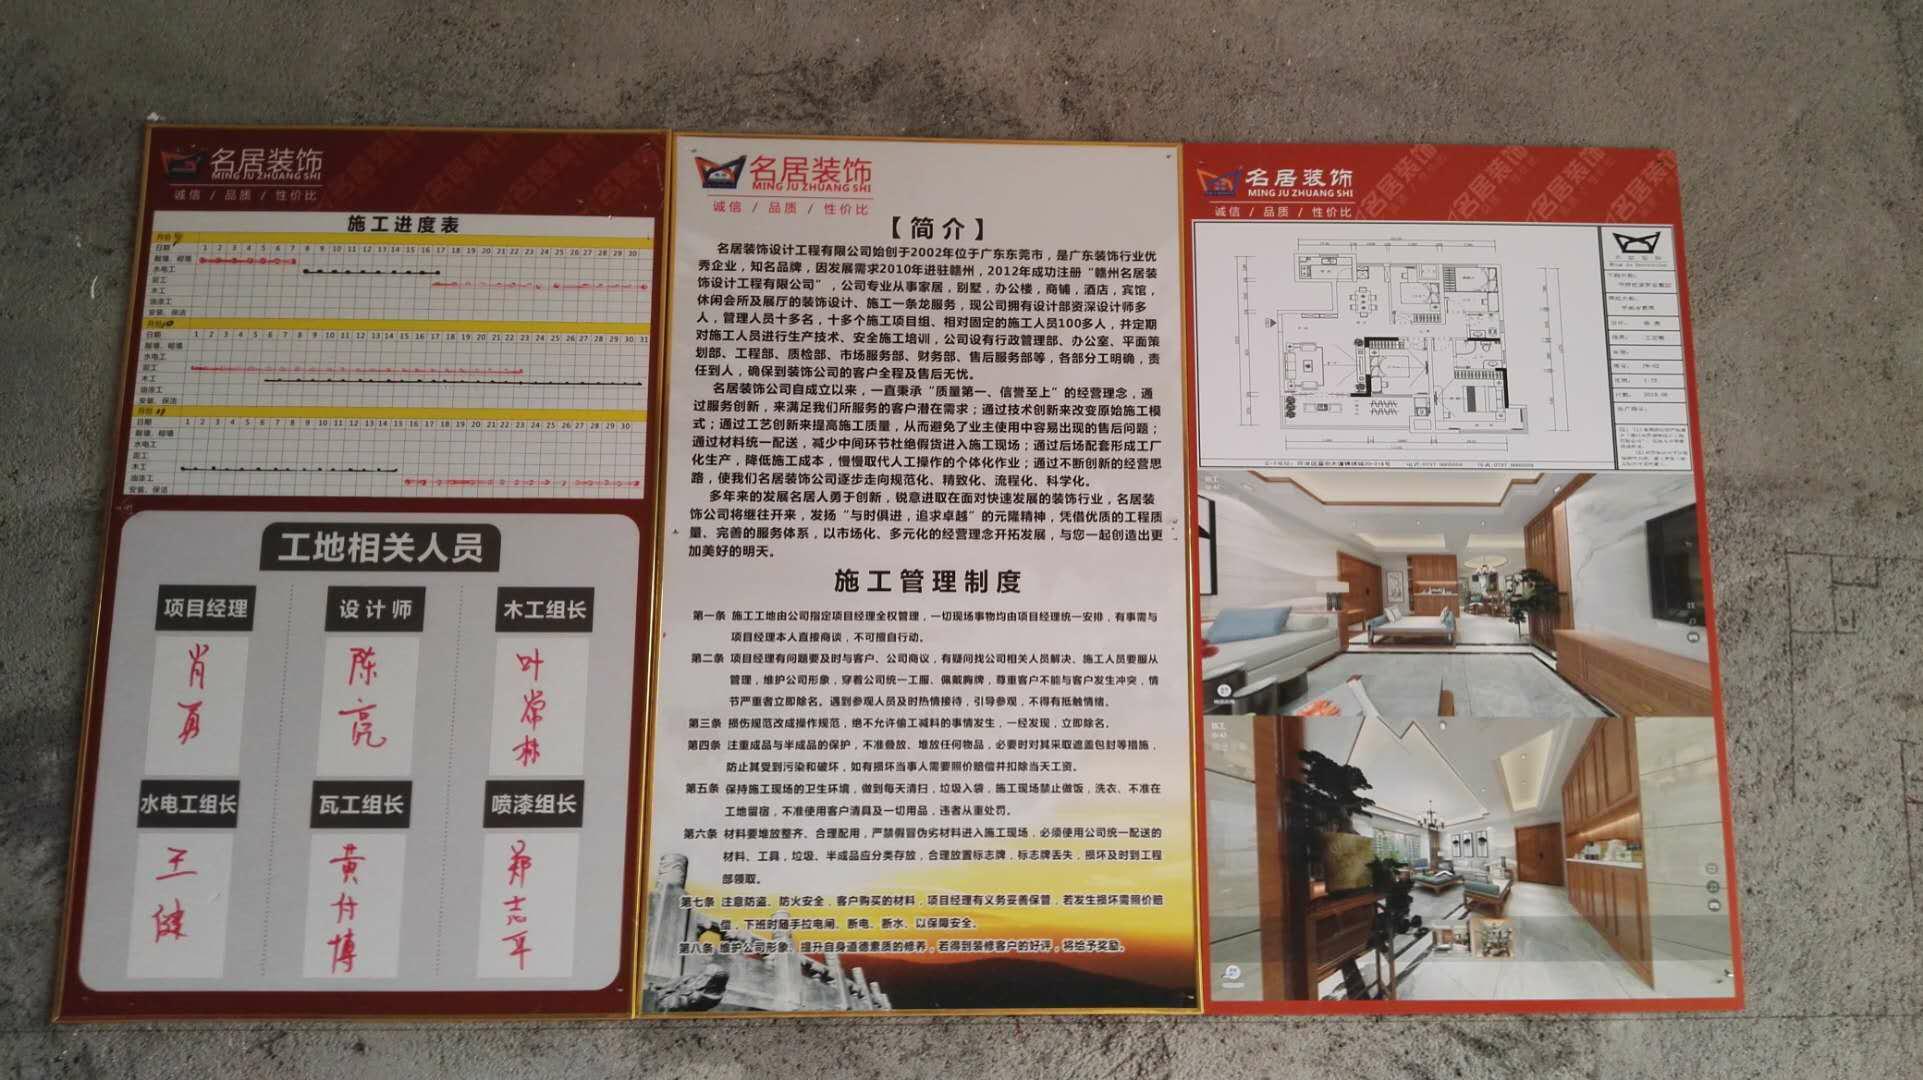 名居装饰
MING JU ZHUANG SHI
诚信 / 品质 / 性价比
施工进度表
月份 9
日期 1 2 3 4 5 6 7 8 9 10 11 12 13 14 15 16 17 18 19 20 21 22 23 24 25 26 27 28 29 30
敲墙、砌墙
水电工
泥工
木工
油漆工
安装、保洁
月份 10
日期 1 2 3 4 5 6 7 8 9 10 11 12 13 14 15 16 17 18 19 20 21 22 23 24 25 26 27 28 29 30 31
敲墙、砌墙
水电工
泥工
木工
油漆工
安装、保洁
月份 11
日期 1 2 3 4 5 6 7 8 9 10 11 12 13 14 15 16 17 18 19 20 21 22 23 24 25 26 27 28 29 30
敲墙、砌墙
水电工
泥工
木工
油漆工
安装、保洁
工地相关人员
项目经理 设计师 木工组长
肖勇 陈亮 叶常林
水电工组长 瓦工组长 喷漆组长
王健 黄付博 郑志平
名居装饰
MING JU ZHUANG SHI
诚信 / 品质 / 性价比
【简介】
名居装饰设计工程有限公司始创于2002年位于广东东莞市，是广东装饰行业优
秀企业，知名品牌，因发展需求2010年进驻赣州，2012年成功注册“赣州名居装
饰设计工程有限公司”，公司专业从事家居，别墅，办公楼，商铺，酒店，宾馆，
休闲会所及展厅的装饰设计、施工一条龙服务，现公司拥有设计部资深设计师多
人，管理人员十多名，十多个施工项目组、相对固定的施工人员100多人，并定期
对施工人员进行生产技术、安全施工培训，公司设有行政管理部、办公室、平面策
划部、工程部、质检部、市场服务部、财务部、售后服务部等，各部分工明确，责
任到人，确保到装饰公司的客户全程及售后无忧。
名居装饰公司自成立以来，一直秉承“质量第一、信誉至上”的经营理念，通
过服务创新，来满足我们所服务的客户潜在需求；通过技术创新来改变原始施工模
式；通过工艺创新来提高施工质量，从而避免了业主使用中容易出现的售后问题；
通过材料统一配送，减少中间环节杜绝假货进入施工现场；通过后场配套形成工厂
化生产，降低施工成本，慢慢取代人工操作的个体化作业；通过不断创新的经营思
路，使我们名居装饰公司逐步走向规范化、精致化、流程化、科学化。
多年来的发展名居人勇于创新，锐意进取在面对快速发展的装饰行业，名居装
饰公司将继往开来，发扬“与时俱进，追求卓越”的元隆精神，凭借优质的工程质
量、完善的服务体系，以市场化、多元化的经营理念开拓发展，与您一起创造出更
加美好的明天。
施工管理制度
第一条 施工工地由公司指定项目经理全权管理，一切现场事物均由项目经理统一安排，有事需与
项目经理本人直接商谈，不可擅自行动。
第二条 项目经理有问题要及时与客户、公司商议，有疑问找公司相关人员解决、施工人员要服从
管理，维护公司形象，穿着公司统一工服、佩戴胸牌，尊重客户不能与客户发生冲突，情
节严重者立即除名。遇到参观人员及时热情接待，引导参观，不得有抵触情绪。
第三条 损伤规范改成操作规范，绝不允许偷工减料的事情发生，一经发现，立即除名。
第四条 注重成品与半成品的保护，不准叠放、堆放任何物品，必要时对其采取遮盖包封等措施，
防止其受到污染和破坏，如有损坏当事人需要照价赔偿并扣除当天工资。
第五条 保持施工现场的卫生环境，做到每天清扫，垃圾入袋，施工现场禁止做饭，洗衣、不准在
工地留宿，不准使用客户清具及一切用品，违者从重处罚。
第六条 材料要堆放整齐、合理配用，严禁假冒伪劣材料进入施工现场，必须使用公司统一配送的
材料、工具，垃圾、半成品应分类存放，合理放置标志牌，标志牌丢失，损坏及时到工程
部领取。
第七条 注意防盗、防火安全，客户购买的材料，项目经理有义务妥善保管，若发生损坏需照价赔
偿，下班时随手拉电闸、断电、断水、以保障安全。
第八条 维护公司形象、提升自身道德素质的修养，若得到装修客户的好评，将给予奖励。
名居装饰
MING JU ZHUANG SHI
诚信 / 品质 / 性价比